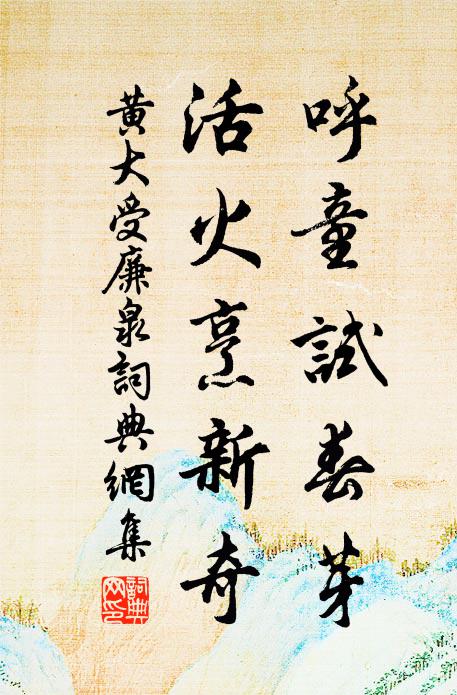 呼童試春芽
活火烹新奇
黄大受廉泉詞典網集
詞典網印